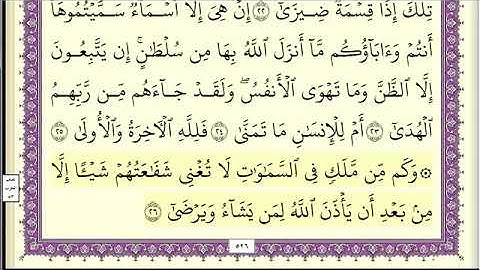 تِلْكَ إِذًا قِسْمَةٌ ضِيزَىٰٓ ﴿٢٢﴾ إِنْ هِىَ إِلَّآ أَسْمَآءٌ سَمَّيْتُمُوهَآ
أَنتُمْ وَءَابَآؤُكُم مَّآ أَنزَلَ ٱللَّهُ بِهَا مِن سُلْطَـٰنٍ ۚ إِن يَتَّبِعُونَ
إِلَّا ٱلظَّنَّ وَمَا تَهْوَى ٱلْأَنفُسُ ۖ وَلَقَدْ جَآءَهُم مِّن رَّبِّهِمُ
ٱلْهُدَىٰٓ ﴿٢٣﴾ أَمْ لِلْإِنسَـٰنِ مَا تَمَنَّىٰ ﴿٢٤﴾ فَلِلَّهِ ٱلْـَٔاخِرَةُ وَٱلْأُولَىٰ ﴿٢٥﴾
۞ وَكَم مِّن مَّلَكٍ فِى ٱلسَّمَـٰوَٰتِ لَا تُغْنِى شَفَـٰعَتُهُمْ شَيْـًٔا إِلَّا
مِنۢ بَعْدِ أَن يَأْذَنَ ٱللَّهُ لِمَن يَشَآءُ وَيَرْضَىٰٓ ﴿٢٦﴾
٥٢٦